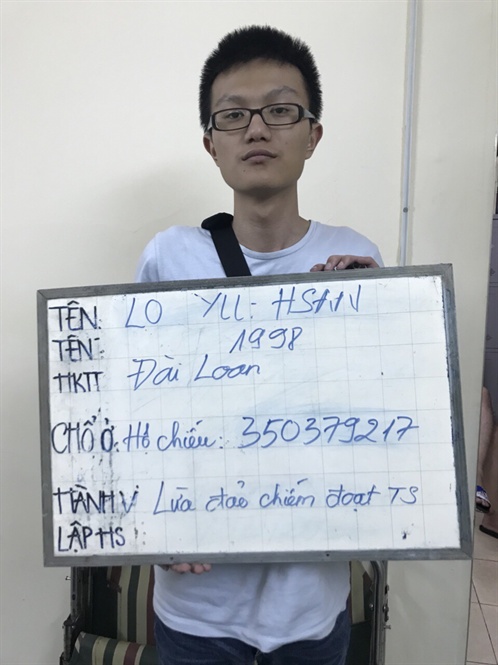 TÊN: LO YU: HSUAN
TÊN: 1998
HKTT Đài Loan
CHỖ Ở: Hộ chiếu: 350379217
HÀNH VI Lừa đảo chiếm đoạt TS
LẬP HS